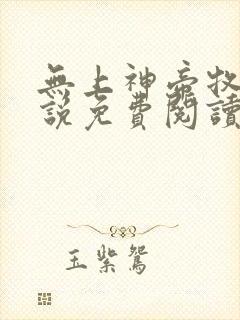 無上神帝牧
說免費閱讀
玉紫鴛